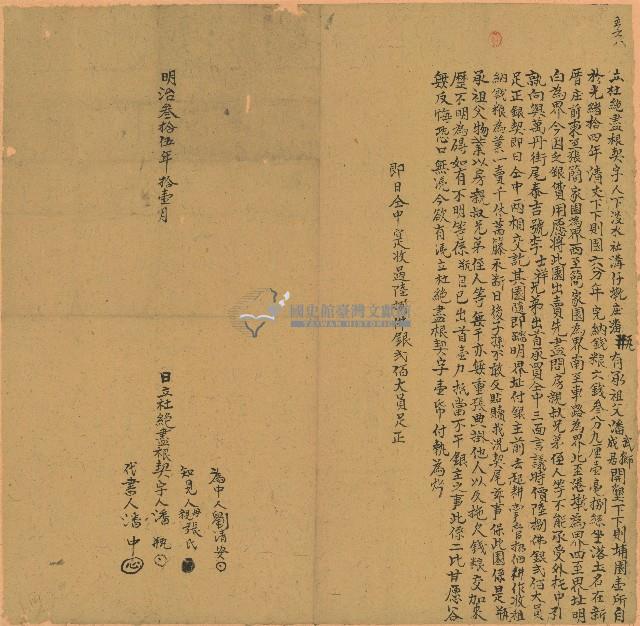 立杜絕盡根契字人下淡水社溝仔墘庄潘瓶有承祖父潘武鄉成居開墾下下則埔園壹所自
於光緒拾四年清丈下下則園六分年完納錢粮六錢叁分九厘壹毫捌絲坐落土名在新
厝庄前東至張簡家園為界西至簡家園為界南至車路為界北至港墘為界四至界址明
白為界今因乏銀費用愿將此園出賣先盡問房親叔兄弟侄人等不能承受外托中引
就向與萬丹街尾泰吉號李士祥兄弟出首承買仝中三面言議時價陸捌佛銀弍佰大員
足正銀契即日仝中兩相交訖其園隨即踏明界址付銀主前去起耕掌管招佃耕作收租
納錢粮為業一賣千休萬藤永斷日後子孫不敢反貼贖找洗契尾等事保此園係是瓶
承祖父物業以房親叔兄弟侄人等無干亦無重張典掛他人以及拖欠錢粮交加來
歷不明為碍如有不明等係瓶自己出首壹力抵當不干銀主之事此係二比甘愿各
無反悔恐口無憑今欲有憑立杜絕盡根契字壹帋付執為炤
即日仝中寔收過陸捌佛銀弍佰大員足正
為中人劉清安
知見人母親張氏
日立杜絕盡根契字人潘瓶
代書人潘中心
明治叁拾伍年拾壹月
國史館臺灣文獻館
TAIWAN HISTORICA